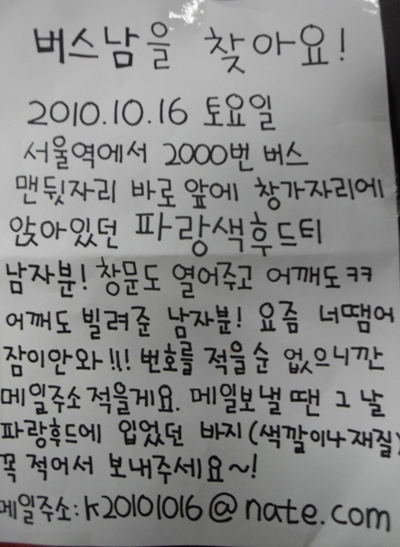 버스남을 찾아요!
2010.10.16 토요일
서울역에서 2000번 버스
맨 뒷자리 바로 앞에 창가자리에
앉아있던 파랑색후드티
남자분! 창문도 열어주고 어깨도ㅋㅋ
어깨도 빌려준 남자분! 요즘 너땜어
잠이안와!!! 번호를 적을순 없으니깐
메일주소 적을게요. 메일보낼 땐 그 날
파랑후드에 입었던 바지(색깔이나 재질)
꼭 적어서 보내주세요~!
메일주소:k20101016@nate.com